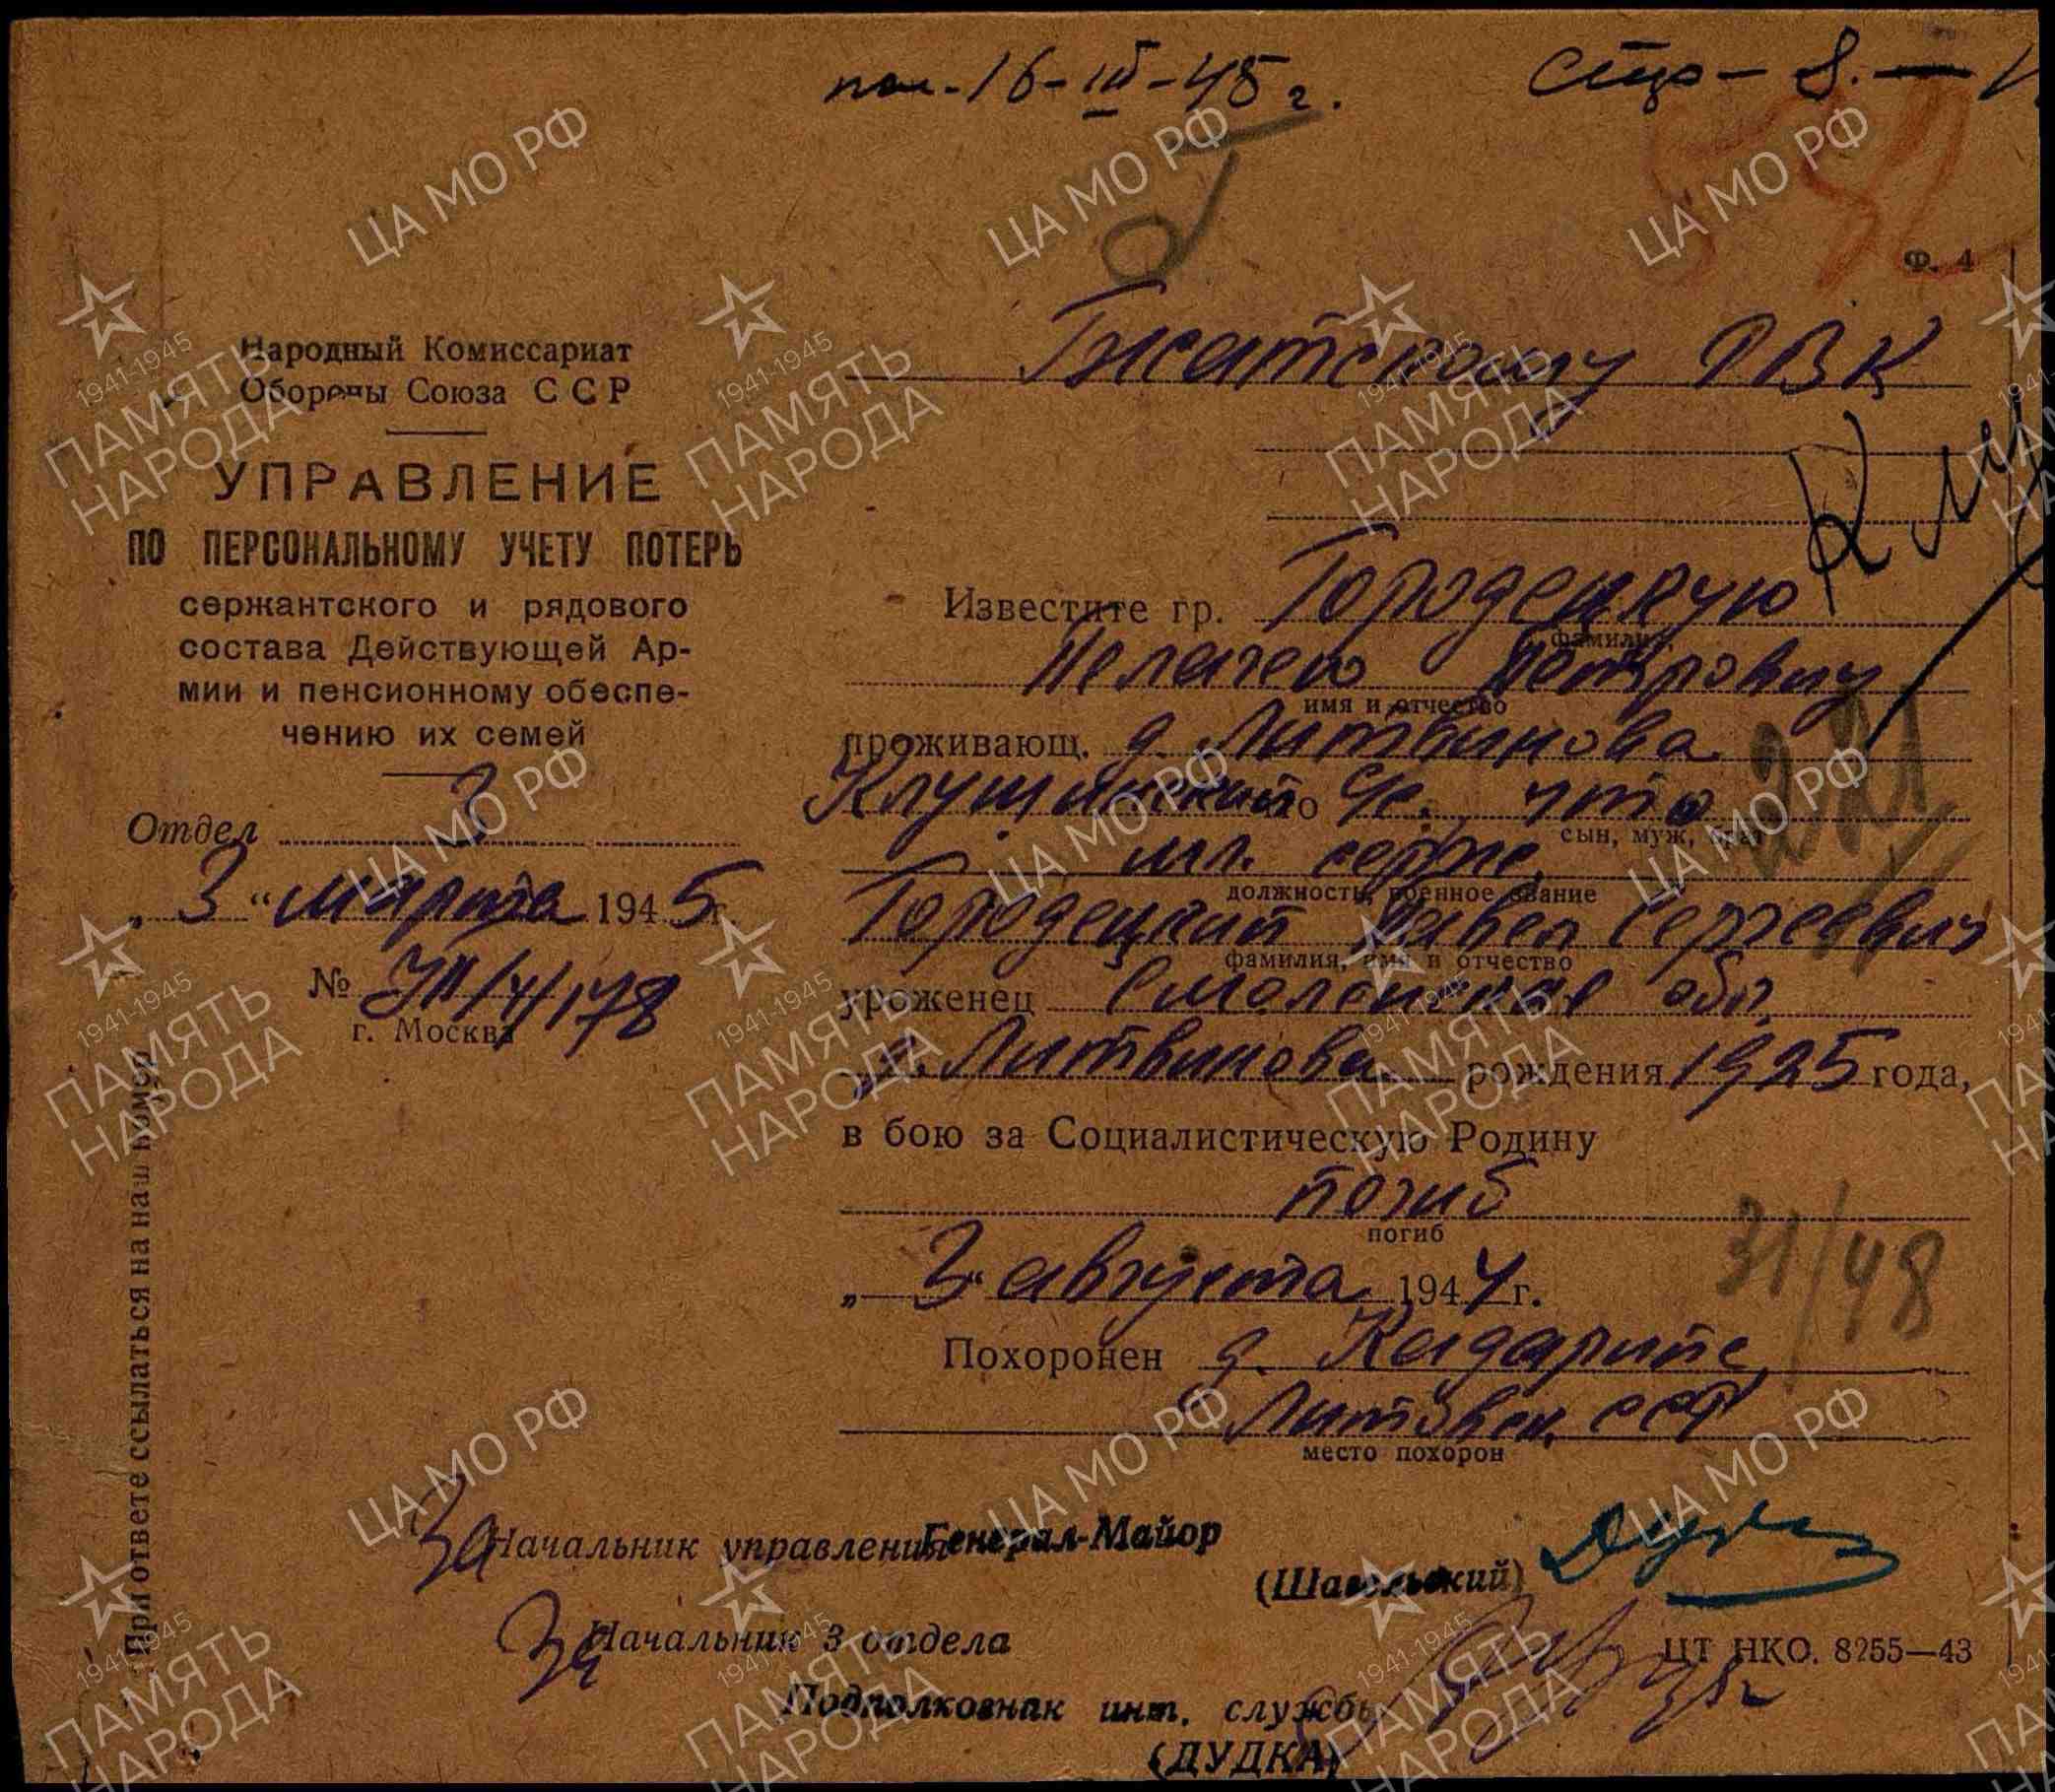 пол.-16-III-45 г.
Ф. 4
Народный Комиссариат
Обороны Союза ССР
УПРАВЛЕНИЕ
ПО ПЕРСОНАЛЬНОМУ УЧЕТУ ПОТЕРЬ
сержантского и рядового
состава Действующей Ар-
мии и пенсионному обеспе-
чению их семей
Отдел 3
„3“ марта 1945 г.
№ УП/4/178
г. Москва
При ответе ссылаться на наш номер
Гжатскому РВК
Известите гр. Городецкую
фамилия,
Пелагею Петровну
имя и отчество
проживающ. д. Литвинова
Клушинский с/с. что
сын, муж, брат
мл. серж.
должность, военное звание
Городецкий Павел Сергеевич
фамилия, имя и отчество
уроженец Смоленская обл.
д. Литвинова рождения 1925 года,
в бою за Социалистическую Родину
погиб
погиб
„3“ августа 1944 г.
31/48
Похоронен д. Кедарипе
Литовск. ССР
место похорон
За Начальник управления Генерал-Майор
(Шавельский)
За Начальник 3 отдела
ЦТ НКО. 8255—43
Подполковник инт. службы
(ДУДКА)
ЦА МО РФ
1941-1945
ПАМЯТЬ
НАРОДА